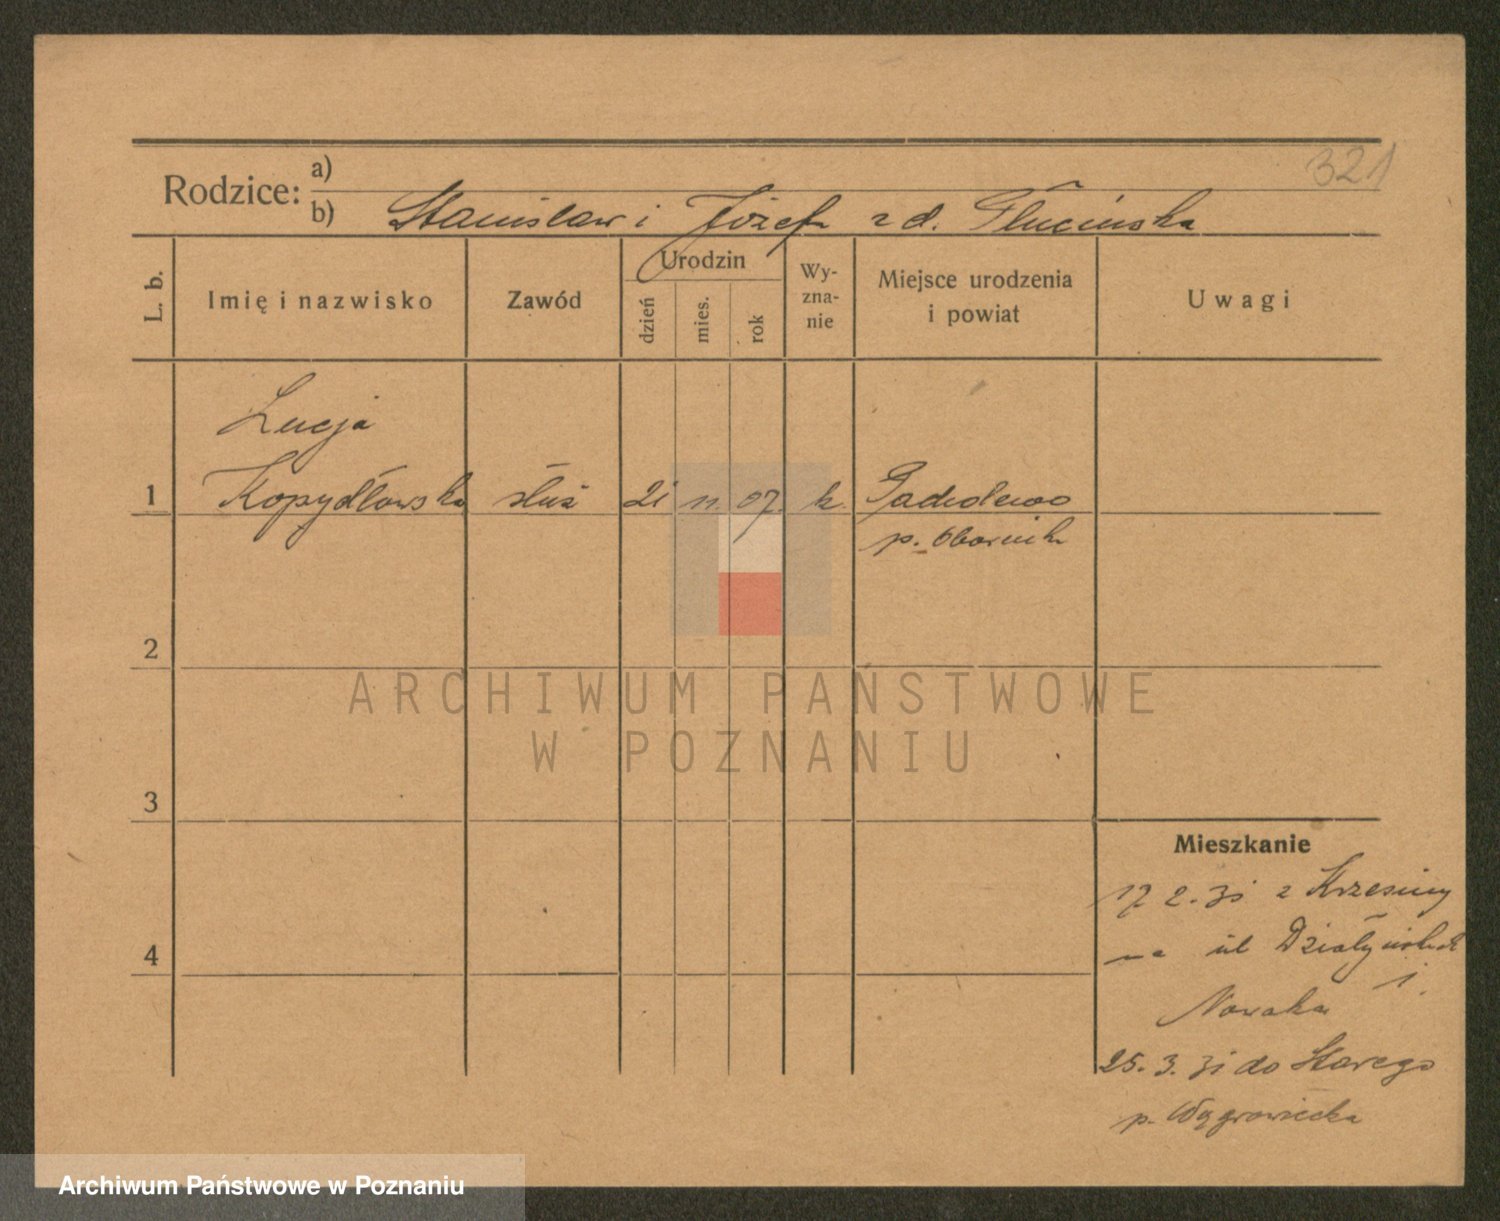 321
Rodzice: a)
b) Stanisław i Józefa z d. Tłucińska
L. b.
Imię i nazwisko
Zawód
Urodzin
dzień
mies.
rok
Wy-
zna-
nie
Miejsce urodzenia
i powiat
Uwagi
Łucja
1 Kopydłowska służ 21 11. 07. k.
p. Obornik
2
3
4
Mieszkanie
17 2. 31 z Krzesiny
na ul Działyńskich
1.
Nowaka
25. 3. 31 do Starego
p. Wągrowiecka
ARCHIWUM PAŃSTWOWE
W POZNANIU
Archiwum Państwowe w Poznaniu